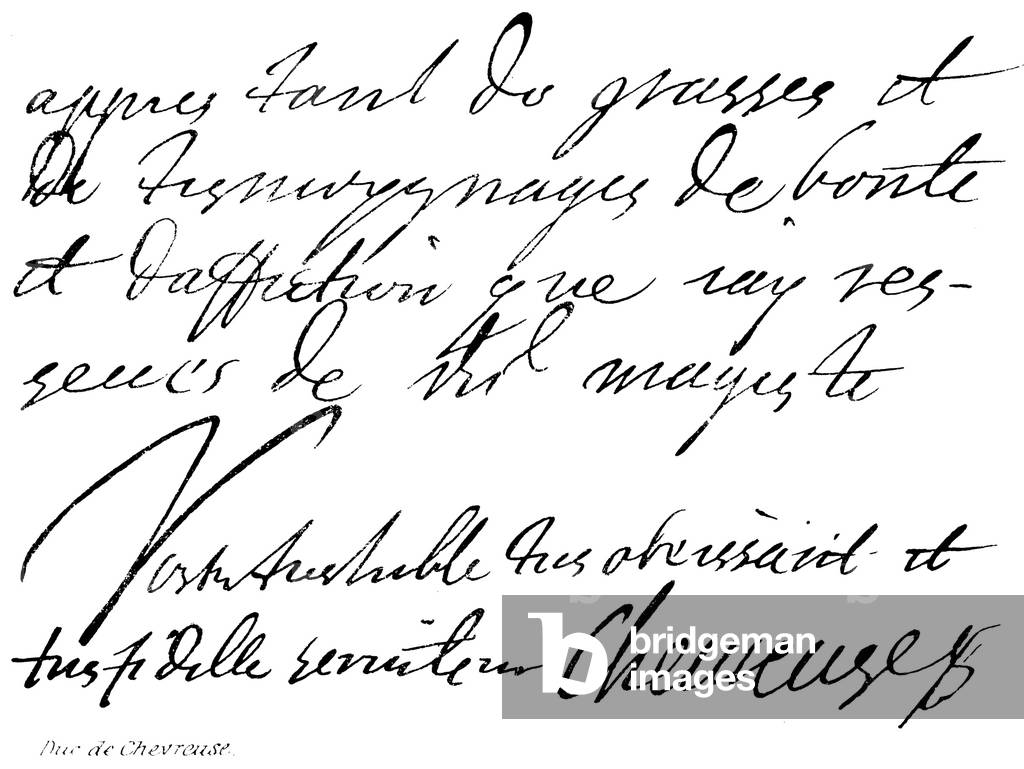 appres tant de grasses et
de tesmoygnages de bonte
et daffection que iay res-
seues de
mageste
Vostre treshuble tres obeissant et
tres fidelle seruiteur Chevreuse
bridgeman
images
Duc de Chevreuse.